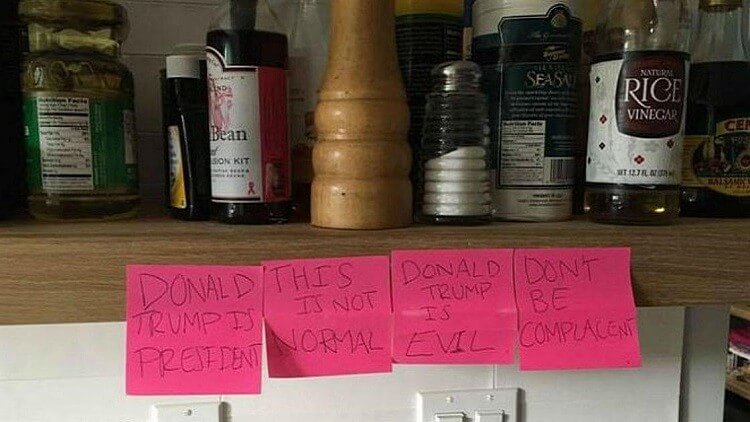 Nutrition Facts
Bean
SION KIT
SEA SA
Nutrition Facts
NATURAL
RICE
VINEGAR
NET 12.7 FL OZ
BALSAMIC
DONALD
TRUMP IS
PRESIDENT
THIS
IS NOT
NORMAL
DONALD
TRUMP
IS
EVIL
DON'T
BE
COMPLACENT